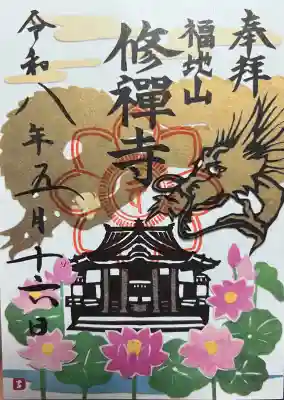 奉拝
福地山
修禪寺
令和八年五月十六日